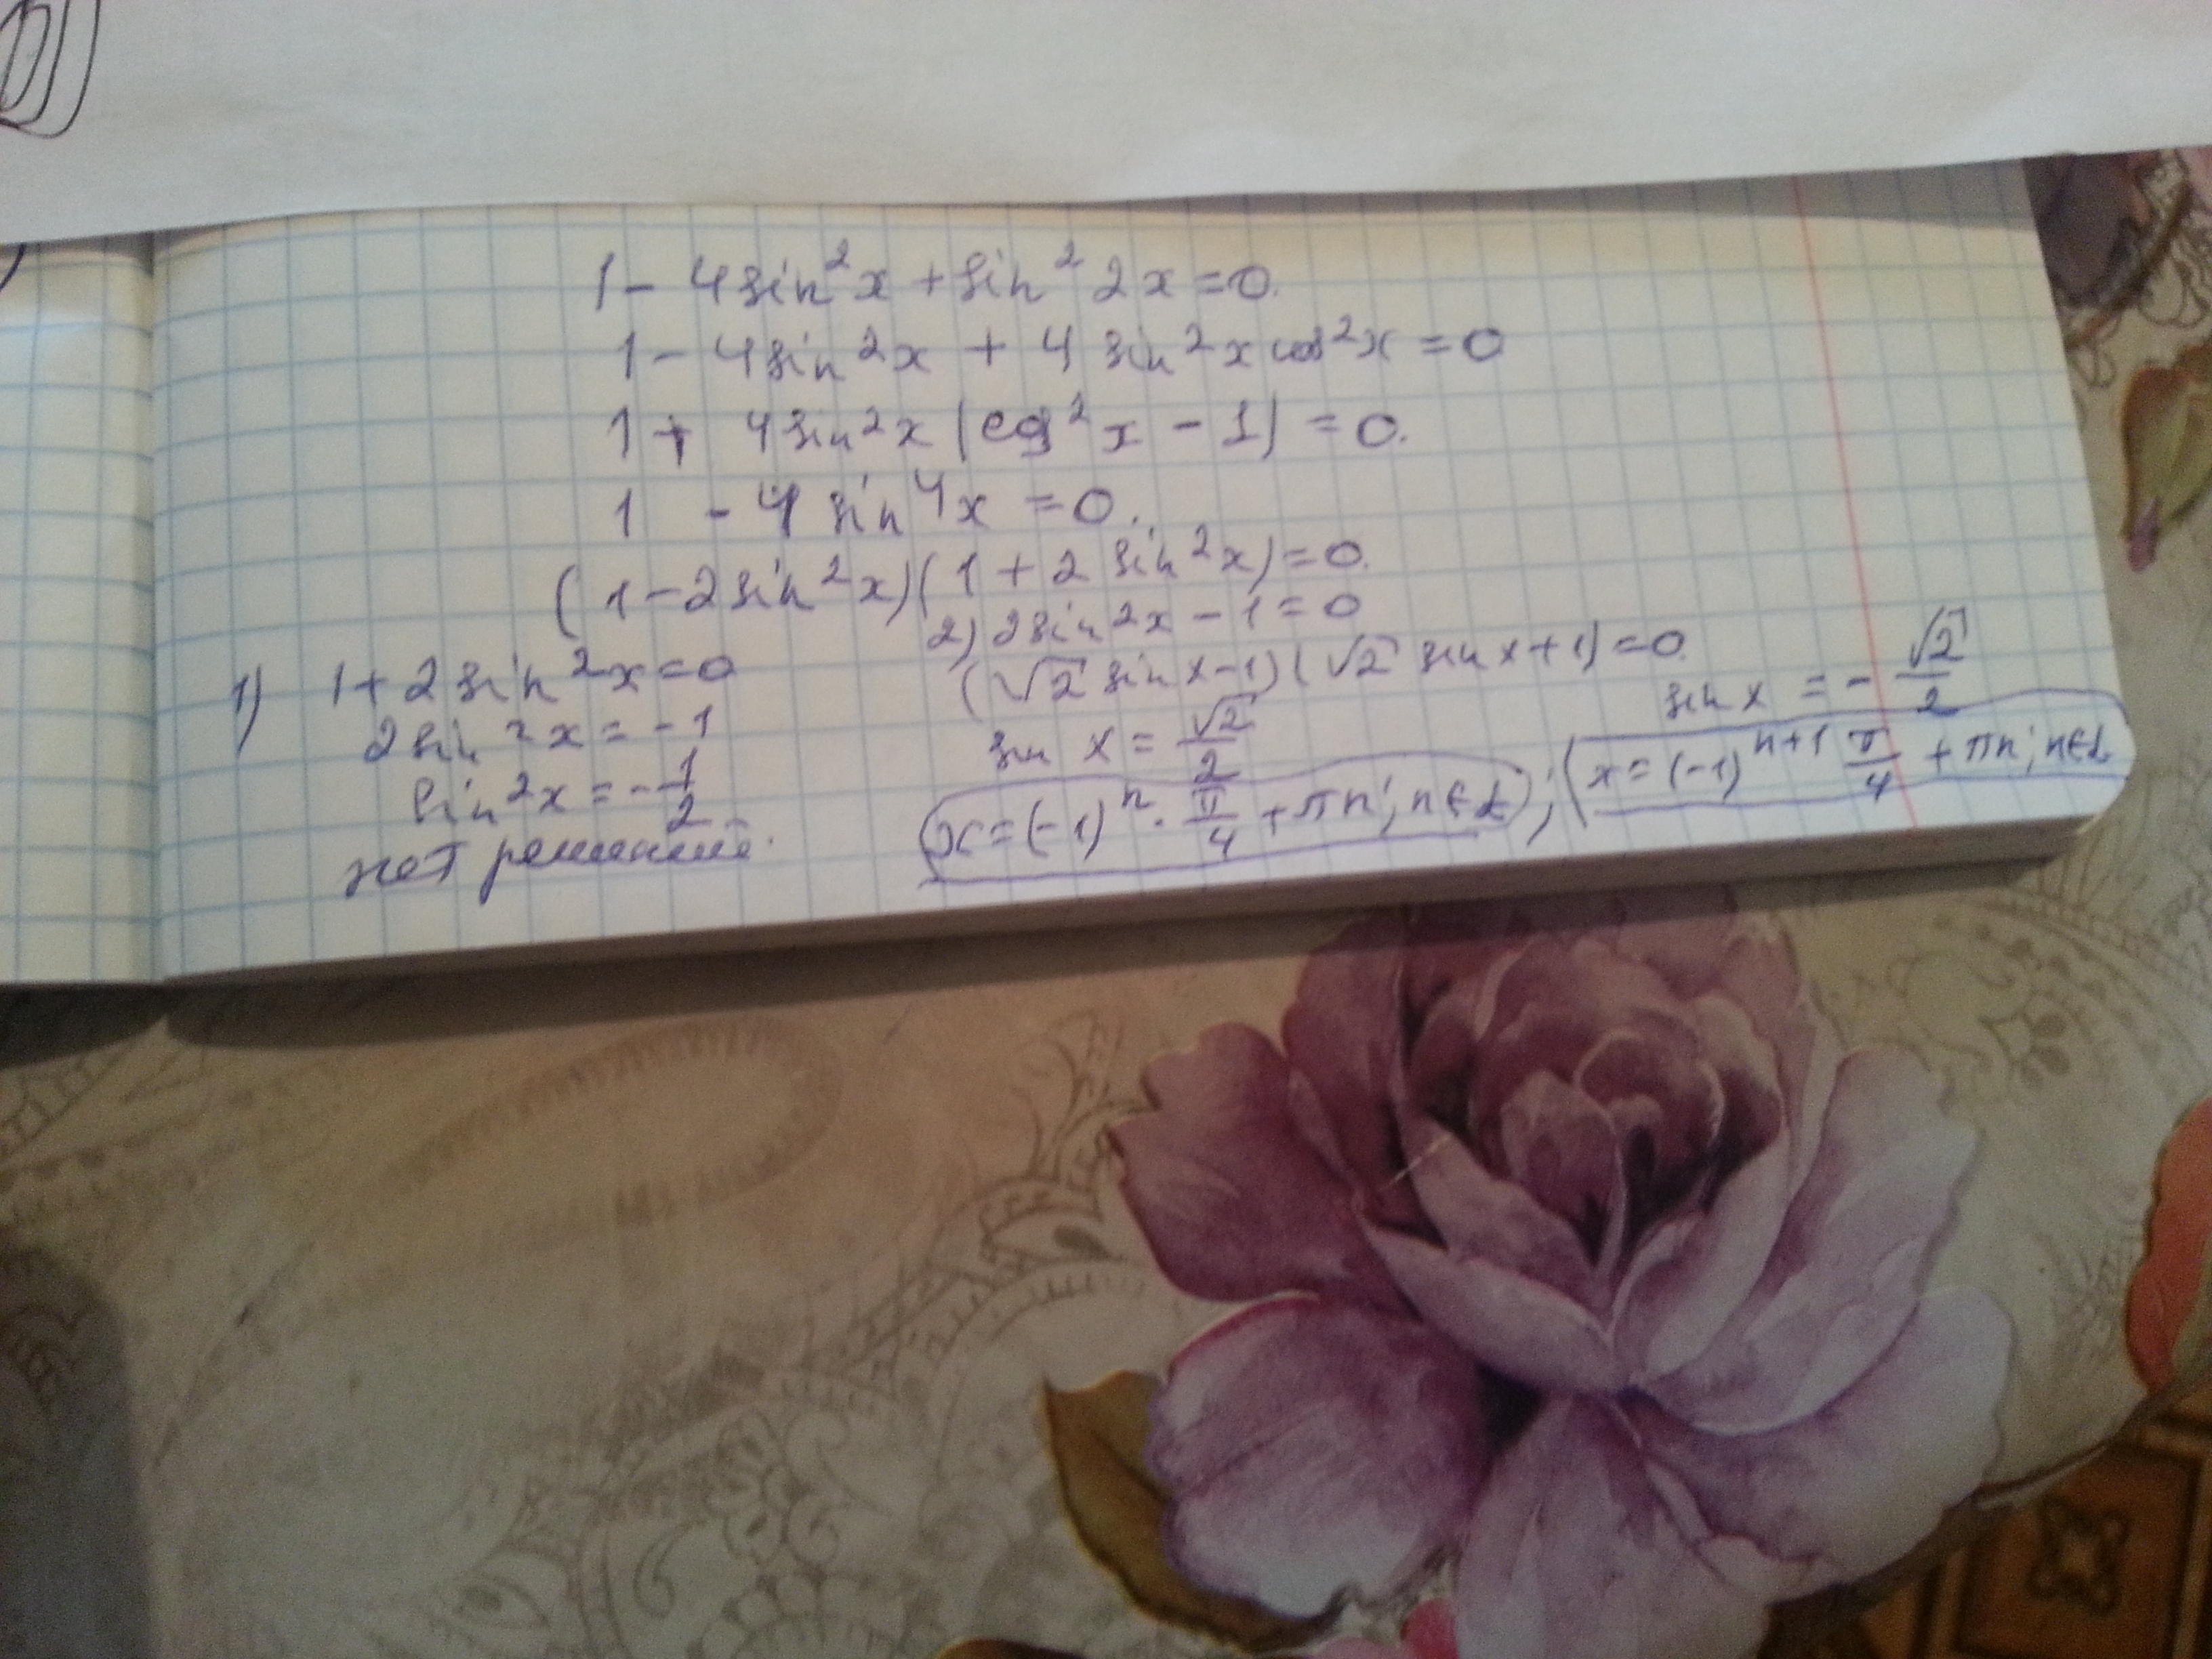 1 - 4 sin² x + sin² 2x = 0.
1 - 4 sin² x + 4 sin² x cos² x = 0
1 + 4 sin² x (cos² x - 1) = 0.
1 - 4 sin⁴ x = 0.
(1 - 2 sin² x)(1 + 2 sin² x) = 0.
1) 1 + 2 sin² x = 0
2 sin² x = -1
sin² x = -1/2
нет решений.
2) 2 sin² x - 1 = 0
(√2 sin x - 1)(√2 sin x + 1) = 0
sin x = √2/2
x = (-1)ⁿ · π/4 + πn; n ∈ Z;
sin x = - √2/2
x = (-1)ⁿ⁺¹ π/4 + πn; n ∈ Z